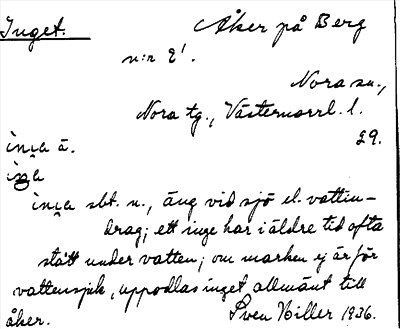 Inget. Åker på Berg
n:r 2¹.
Nora sn.,
Nora tg., Västernorrl. l.
29.
iŋa å.
iŋa
iŋa sbt. n., äng vid sjö el. vatten-
drag; ett inge har i äldre tid ofta
stått under vatten; om marken ej är för
vattensjuk, uppodlas inget allmänt till
åker. Sven Hiller 1936.